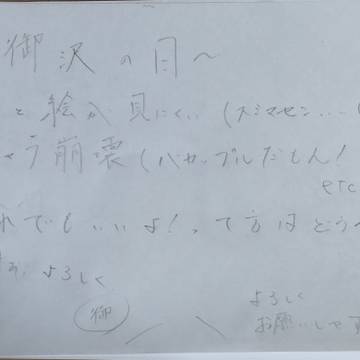 御沢の日〜
と絵が見にくい(スミマセン...
ャラ崩壊(バカップルだもん!
etc
れでもいいよ!って方はどうぞ
よろしく
御
よろしく
お願いします